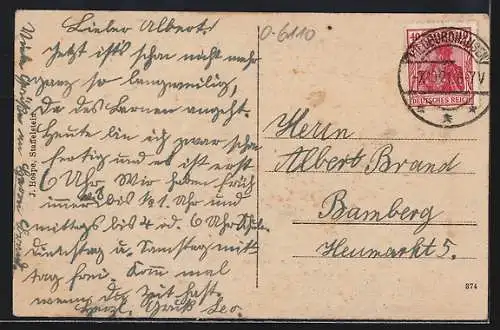 Lieber Albert!
Jetzt ist's schon nicht mehr
ganz so langweilig,
Da das Lernen angeht.
Heute bin ich zwar schon
fertig und es ist erst
6 Uhr. Wir haben früh
immer bis 1 Uhr und
mittags bis 4 od. 6 Uhr Schule
Dienstag u. Samstag mit-
tag frei. Komm mal
wenn du Zeit hast.
Herzl. Gruß Leo.
J. Hospe, Staffelstein
0-6110
40
DEUTSCHES REICH
HILDBURGHAUSEN
Herrn
Albert Brand
Bamberg
Heumarkt 5.
374